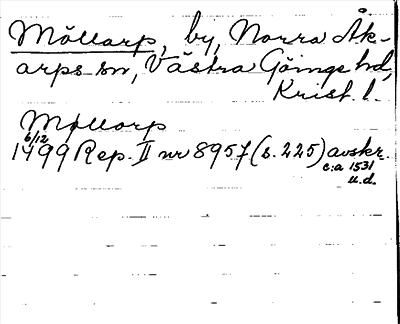 Möllarp, by, Norra Åk-
arps sn, Västra Göinge hd,
Krist. l.
Møllarp
6/12
1499 Rep. II nr 8957 (s. 225) avskr.
c:a 1531
u.d.